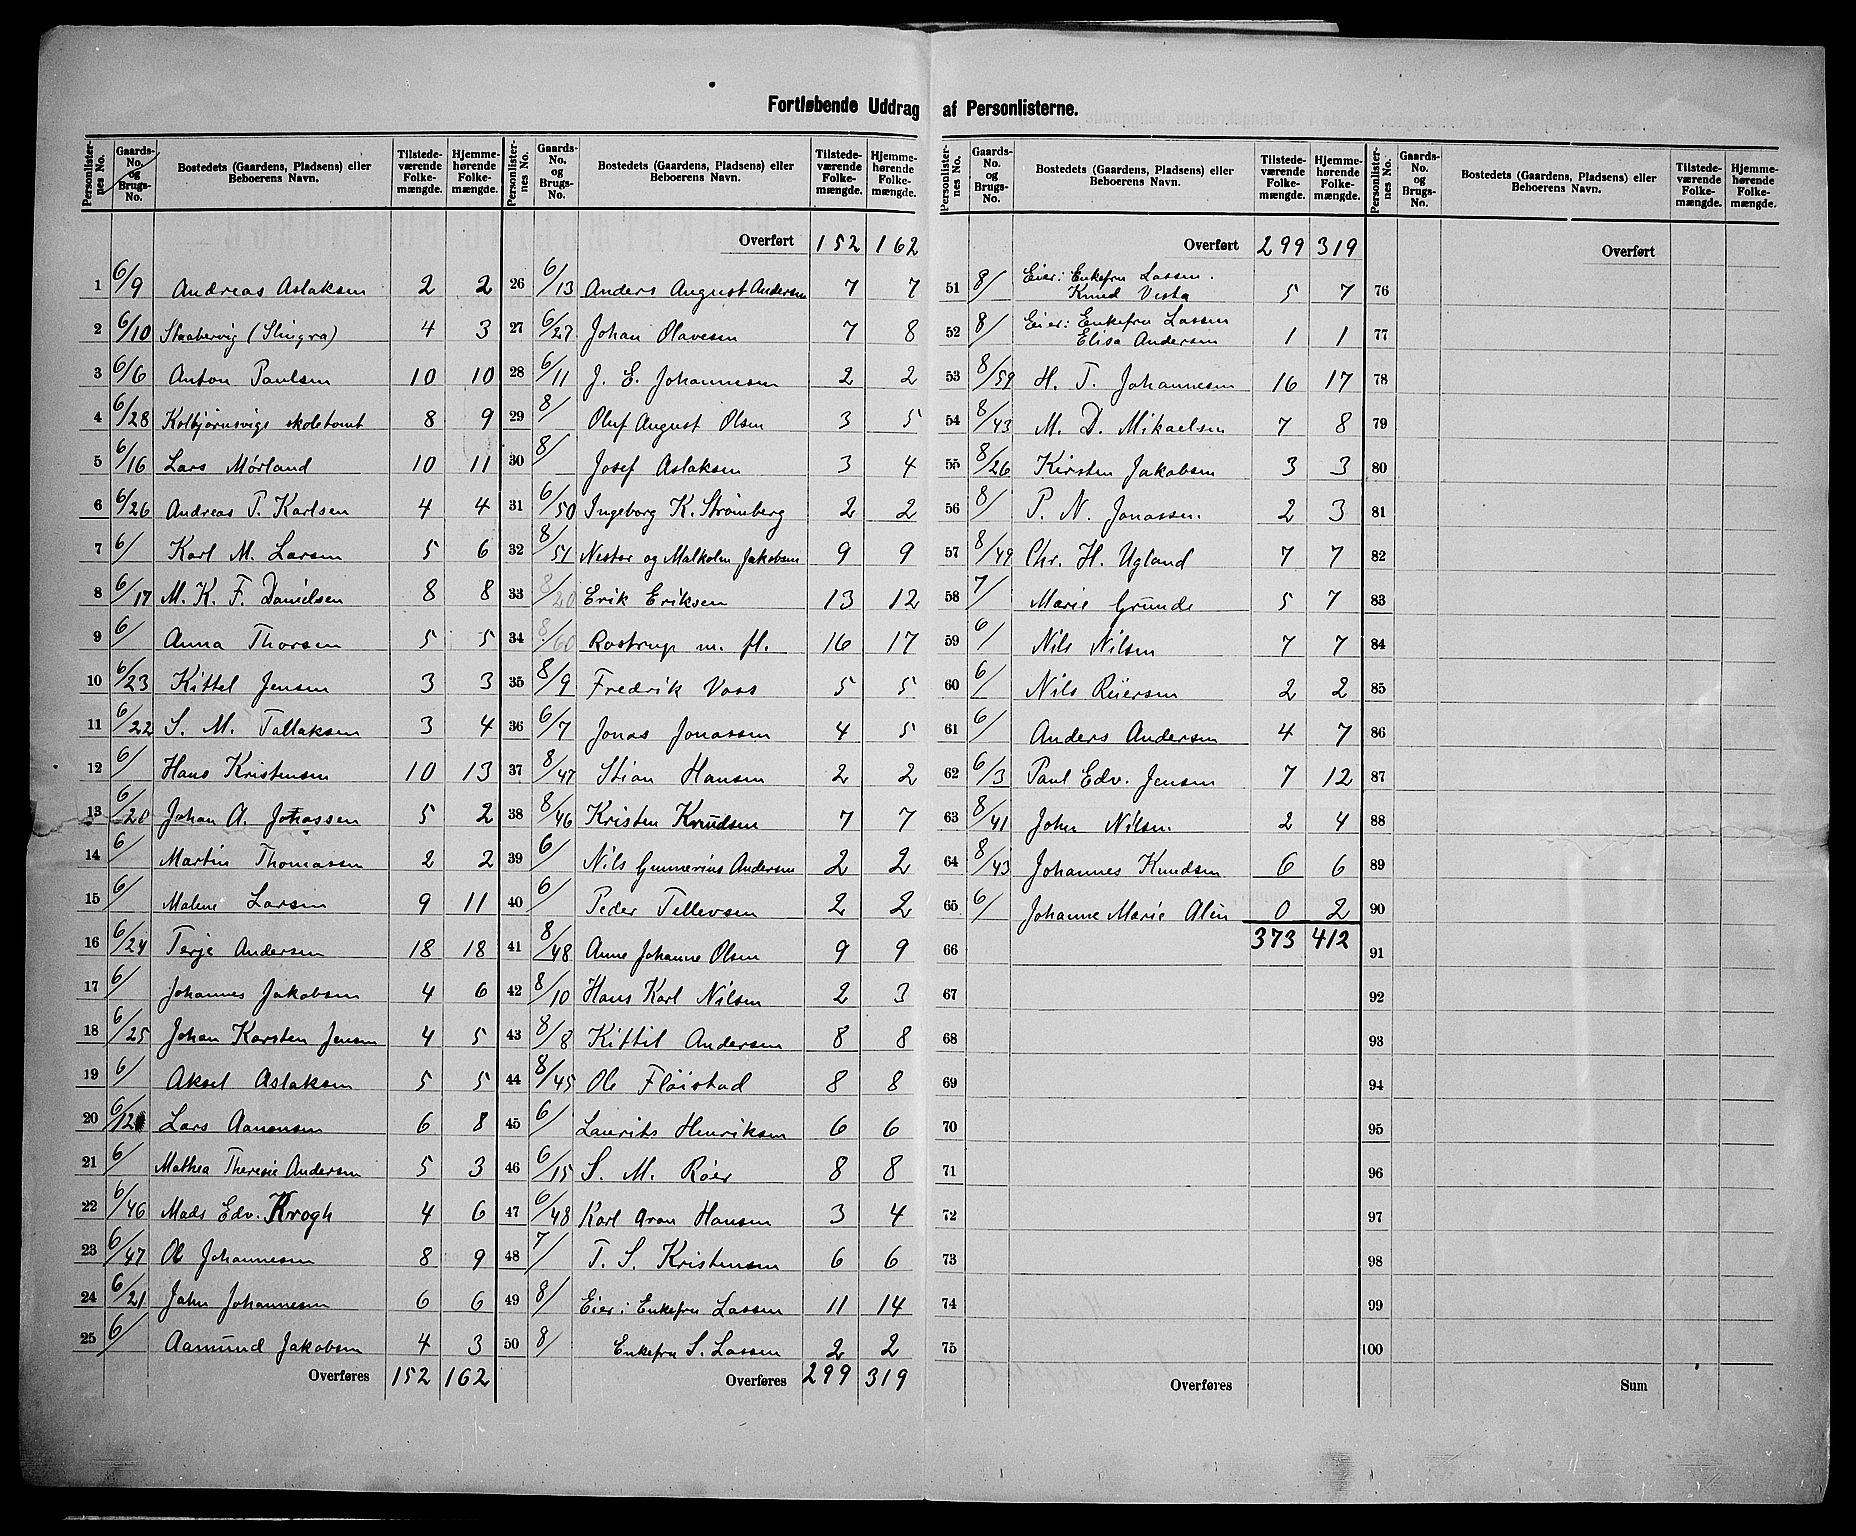 Fortløbende Uddrag af Personlisterne.
Personlisternes No. Gaards-No. og Brugs-No. Bostedets (Gaardens, Pladsens) eller Beboerens Navn. Tilstedeværende Folkemængde. Hjemmehørende Folkemængde.
1 6/9 Andreas Aslaksen 2 2
2 6/10 Staabervig (Slingra) 4 3
3 6/6 Anton Paulsen 10 10
4 6/28 Kolbjørnsvigs skoletomt 8 9
5 6/16 Lars Mørland 10 11
6 6/26 Andreas T. Karlsen 4 4
7 6/ Karl M. Larsen 5 6
8 6/17 M. K. F. Danielsen 8 8
9 6/ Anna Thorsen 5 5
10 6/23 Kittel Jensen 3 3
11 6/22 S. M. Tallaksen 3 4
12 6/ Hans Kristensen 10 13
13 6/20 Johan A. Johassen 5 2
14 6/ Martin Thomassen 2 2
15 6/ Malene Larsen 9 11
16 6/24 Terje Andersen 18 18
17 6/ Johannes Jakobsen 4 6
18 6/25 Johan Karsten Jensen 4 5
19 6/ Aksel Aslaksen 5 5
20 6/12 Lars Aanonsen 6 8
21 6/ Mathea Theresie Andersen 5 3
22 6/46 Mads Edv. Krogh 4 6
23 6/47 Ole Johannesen 8 9
24 6/21 John Johannesen 6 6
25 6/ Aamund Jakobsen 4 3
Overføres 152 162
Personlisternes No. Gaards-No. og Brugs-No. Bostedets (Gaardens, Pladsens) eller Beboerens Navn. Tilstedeværende Folkemængde. Hjemmehørende Folkemængde.
Overført 152 162
26 6/13 Anders August Andersen 7 7
27 6/27 Johan Olavesen 7 8
28 6/11 J. E. Johannesen 2 2
29 8/ Oluf August Olsen 3 5
30 8/ Josef Aslaksen 3 4
31 6/50 Ingeborg K. Strømberg 2 2
32 8/51 Nestor og Malkolm Jakobsen 9 9
33 8/20 Erik Eriksen 13 12
34 8/60 Rostrup m. fl. 16 17
35 8/9 Fredrik Voss 5 5
36 6/7 Jonas Jonassen 4 5
37 8/47 Stian Hansen 2 2
38 8/46 Kristen Knudsen 7 7
39 6/ Nils Gunnerius Andersen 2 2
40 6/ Peder Tellevsen 2 2
41 8/48 Anne Johanne Olsen 9 9
42 8/10 Hans Karl Nilsen 2 3
43 8/8 Kittil Andersen 8 8
44 8/45 Ole Fløistad 8 8
45 6/ Laurits Henriksen 6 6
46 6/15 S. M. Røer 8 8
47 6/48 Karl Aron Hansen 3 4
48 7/ T. S. Kristensen 6 6
49 8/ Eier: Enkefru Lassen 11 14
50 8/ Enkefru S. Lassen 2 2
Overføres 299 319
Personlisternes No. Gaards-No. og Brugs-No. Bostedets (Gaardens, Pladsens) eller Beboerens Navn. Tilstedeværende Folkemængde. Hjemmehørende Folkemængde.
Overført 299 319
51 8/ Eier: Enkefru Lassen.
Knud Vesta 5 7
52 8/ Eier: Enkefru Lassen
Elisa Andersen 1 1
53 8/59 H. T. Johannesen 16 17
54 8/43 M. D. Mikaelsen 7 8
55 8/26 Kirsten Jakobsen 3 3
56 8/ P. N. Jonassen. 2 3
57 8/49 Chr. H. Ugland 7 7
58 7/ Marie Grunde 5 7
59 6/ Nils Nilsen 7 7
60 6/ Nils Reiersen 2 2
61 6/ Anders Andersen 4 7
62 6/3 Paul Edv. Jensen 7 12
63 8/41 John Nilsen. 2 4
64 8/43 Johannes Knudsen 6 6
65 6/ Johanne Marie Alin 0 2
66 373 412
67
68
69
70
71
72
73
74
75
Overføres
Personlisternes No. Gaards-No. og Brugs-No. Bostedets (Gaardens, Pladsens) eller Beboerens Navn. Tilstedeværende Folkemængde. Hjemmehørende Folkemængde.
Overført
76
77
78
79
80
81
82
83
84
85
86
87
88
89
90
91
92
93
94
95
96
97
98
99
100
Sum